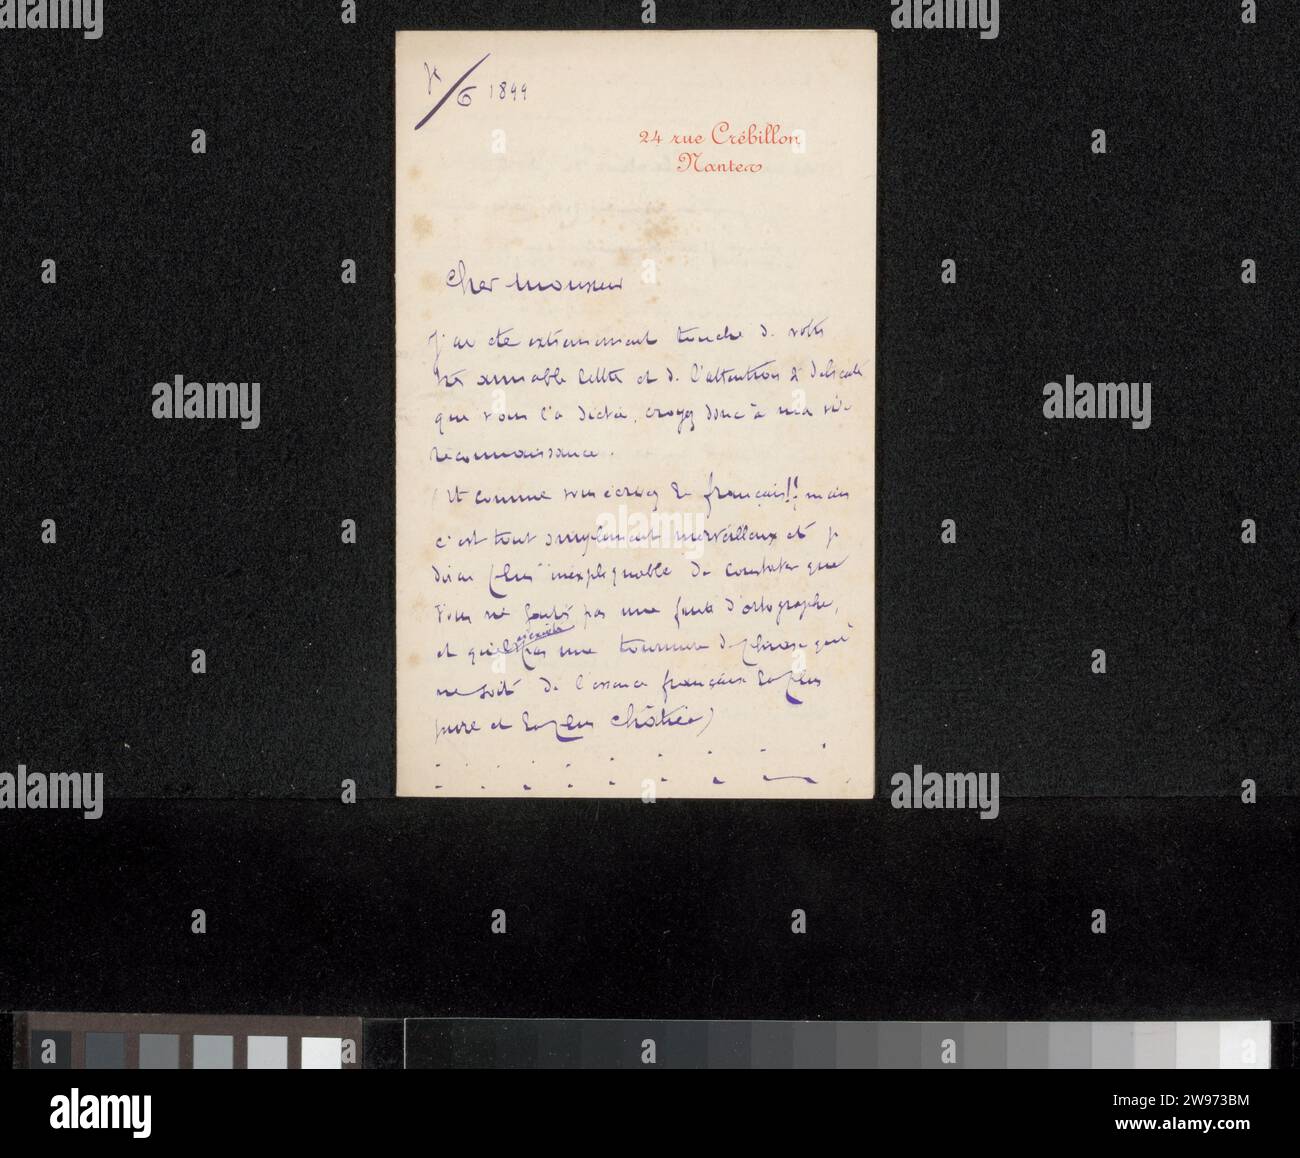 6 1899
24 rue Crébillon
Nantes
Cher Monsieur
J'ai été extrêmement touché de votre
très aimable lettre et de l'attention si délicate
que vous l'a dictée, croyez donc à ma vive
reconnaissance.
(Et comme vous écrivez le français!! mais
c'est tout simplement merveilleux et je
dirai plus inexpliquable de constater que
vous ne faites pas une faute d'ortographe,
et qu'il pas une tournure de phrase qui
ne soit de l'essence française la plus
pure et la plus châtiée)
alamy
Image ID: 2W973BM
www.alamy.com